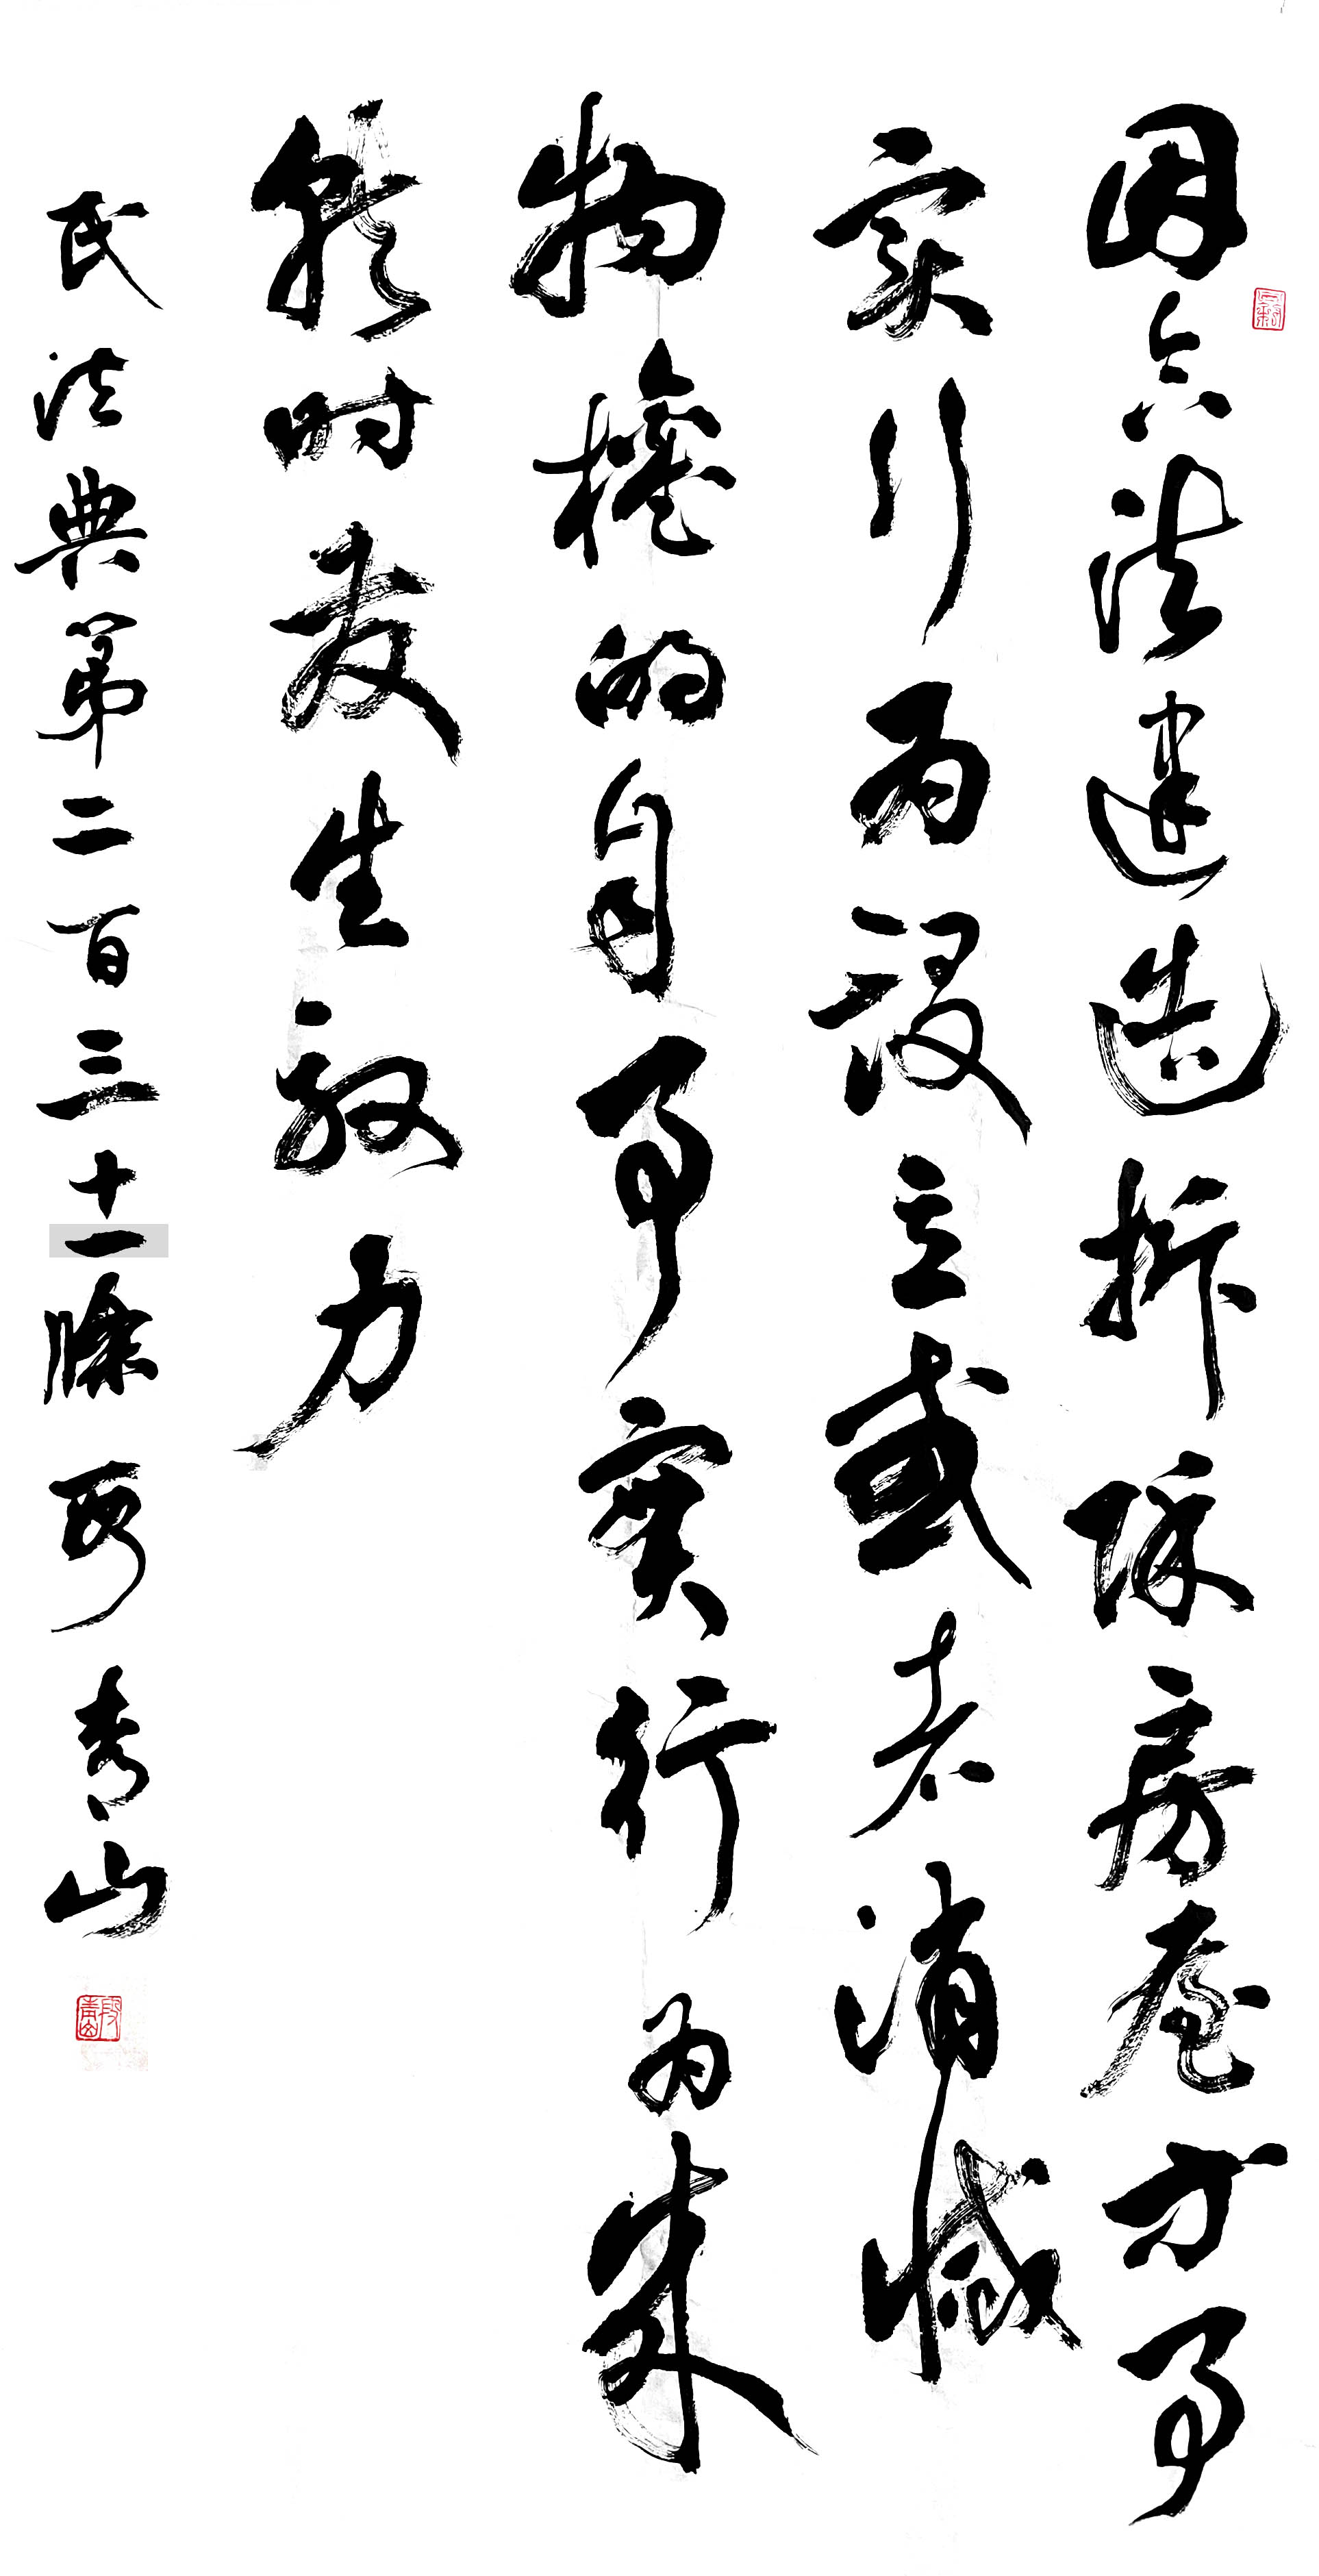 因合法建造拆除房屋等事
实行为设立或者消滅
物權的自事實行为成
就时发生效力
民法典第二百三十一條 段青山
段青山